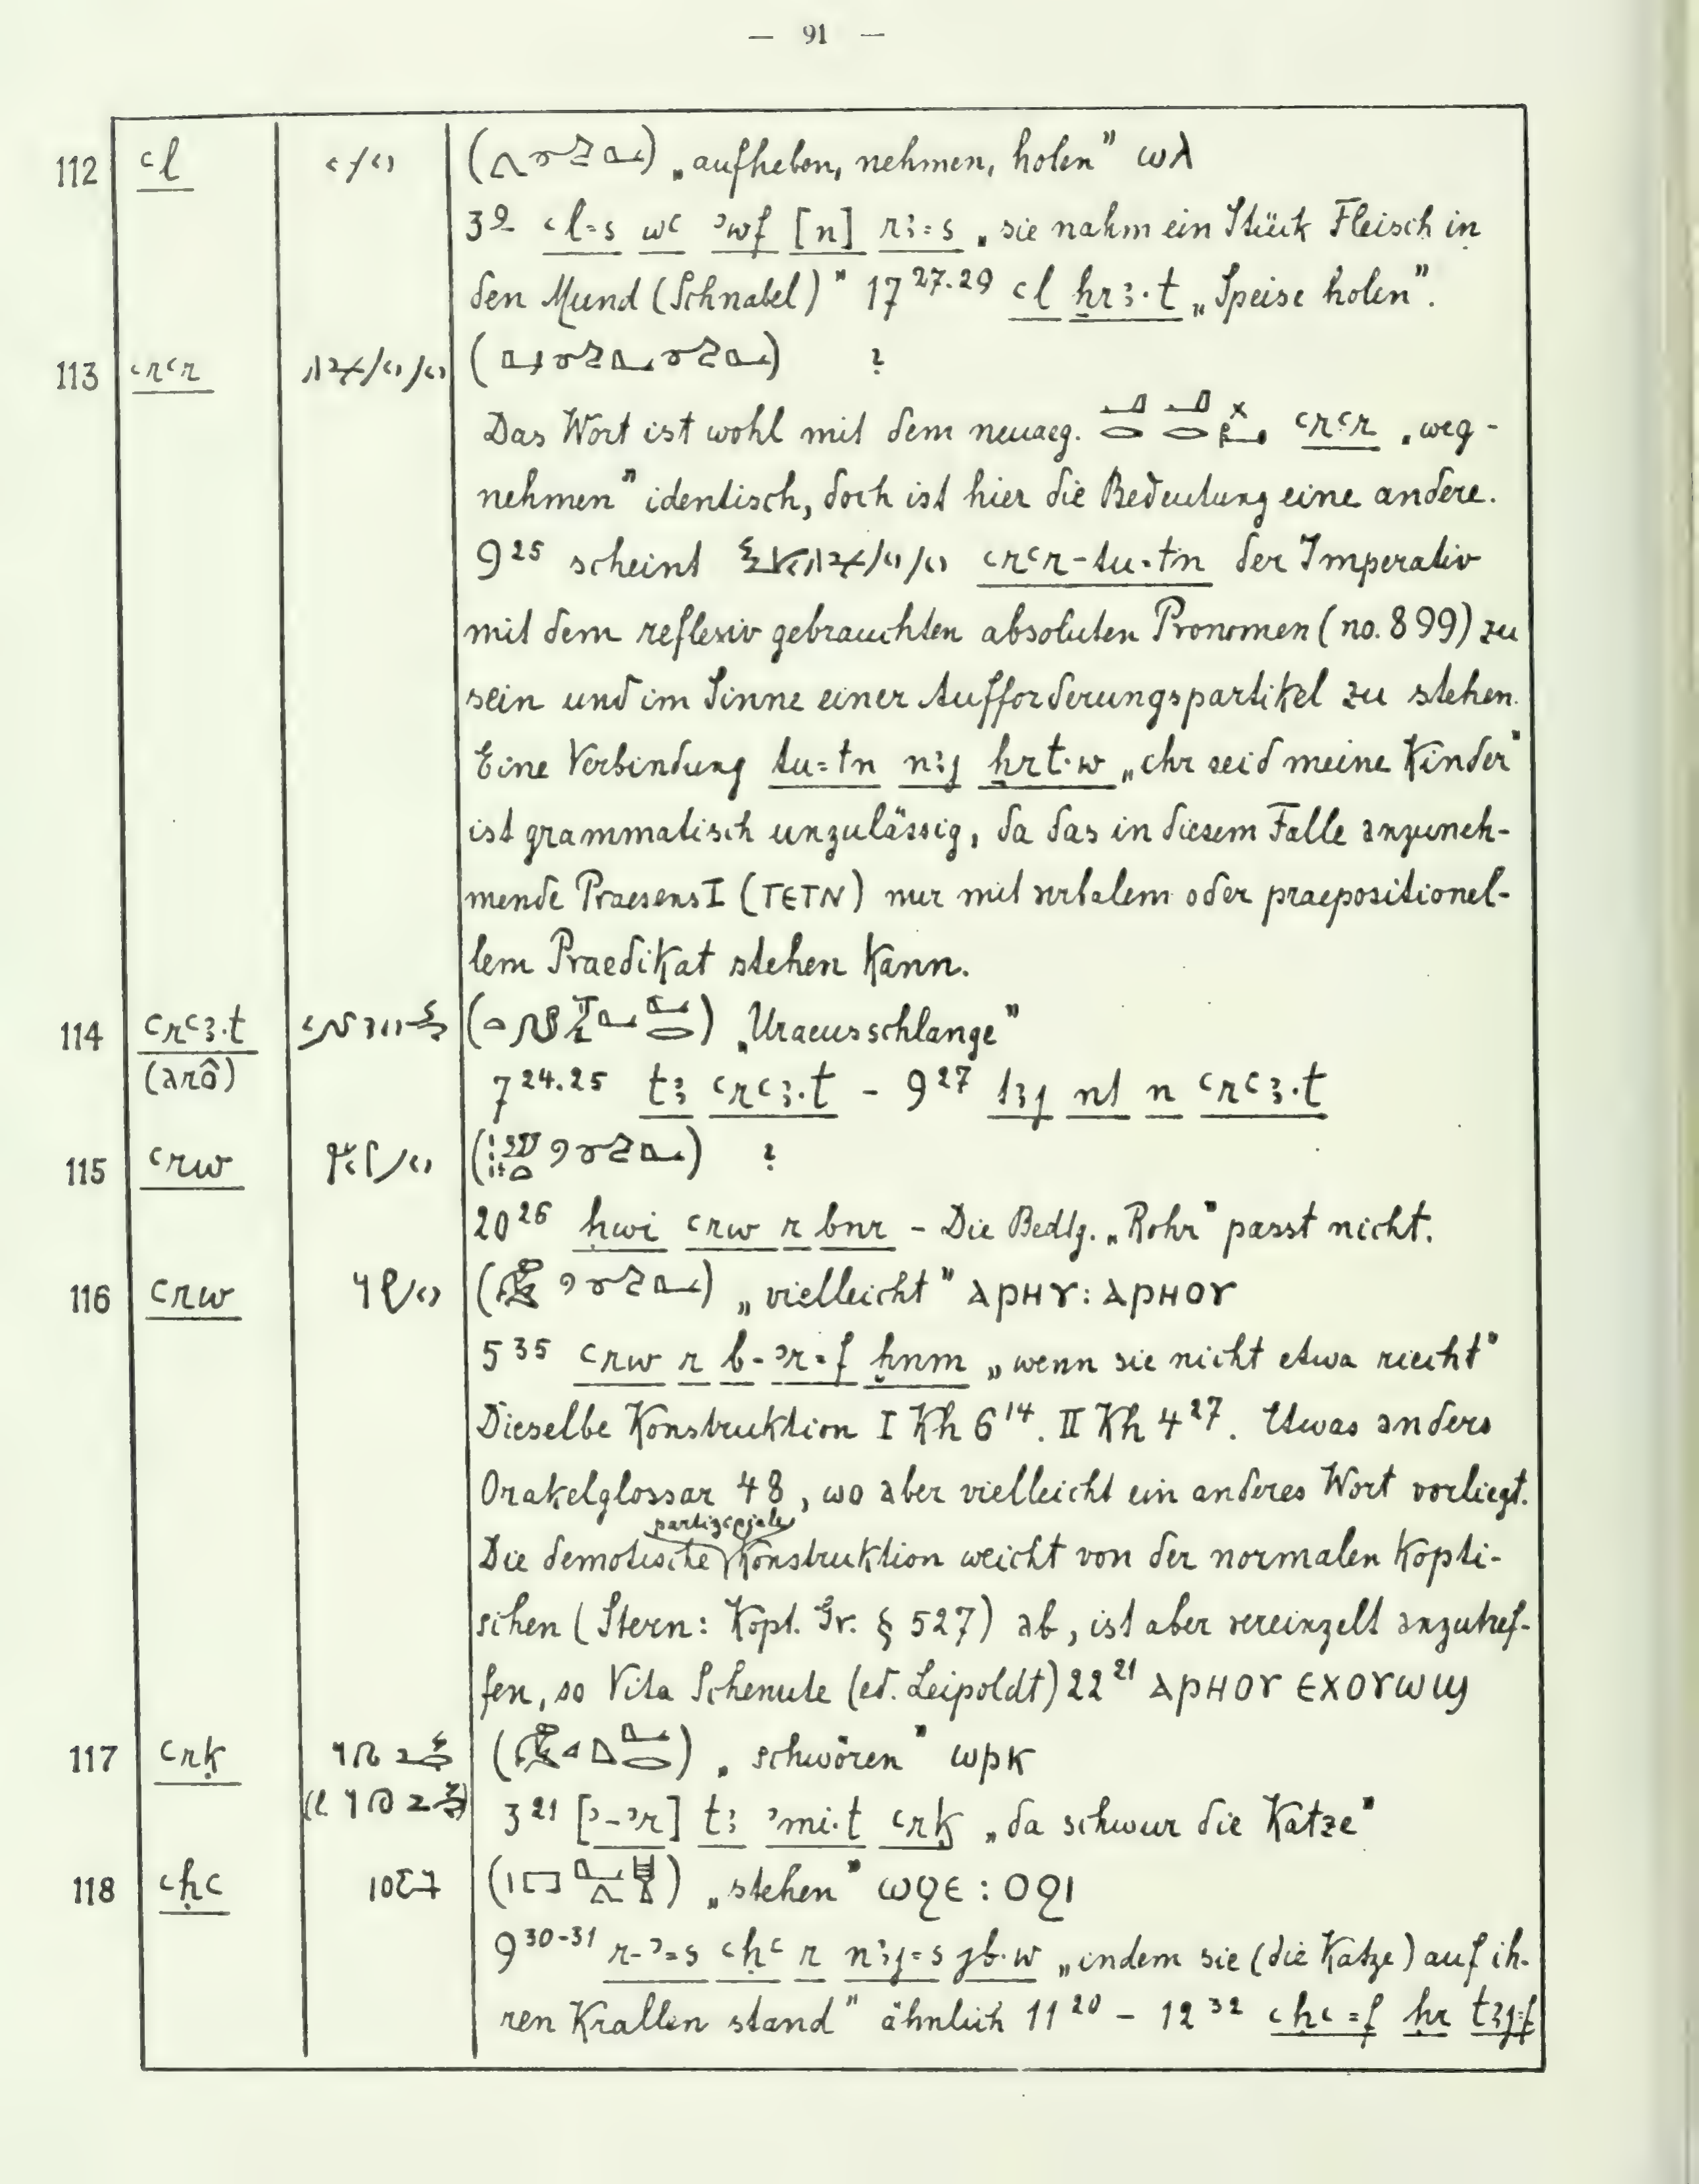 — 91 —
112 ꜥl „aufheben, nehmen, holen” ⲱⲗ
3⁹ ꜥl=s wꜥ ꜣwf [n] rꜣ=s „sie nahm ein Stück Fleisch in
den Mund (Schnabel)” 17²⁷·²⁹ ꜥl ḫrꜣ.t „Speise holen”.
113 ꜥrꜥr ?
Das Wort ist wohl mit dem neuaeg. ꜥrꜥr „weg-
nehmen” identisch, doch ist hier die Bedeutung eine andere.
9²⁵ scheint ꜥrꜥr-tu=tn der Imperativ
mit dem reflexiv gebrauchten absoluten Pronomen (no. 899) zu
sein und im Sinne einer Aufforderungspartikel zu stehen.
Eine Verbindung tu=tn nꜣj ḫrt.w „ihr seid meine Kinder”
ist grammatisch unzulässig, da das in diesem Falle anzuneh-
mende Praesens I (ⲧⲉⲧⲛ) nur mit verbalem oder praepositionel-
lem Praedikat stehen kann.
114 ꜥrꜥꜣ.t „Uraeusschlange”
(arô)
7²⁴·²⁵ tꜣ ꜥrꜥꜣ.t – 9²⁷ tꜣj nt n ꜥrꜥꜣ.t
115 ꜥrw ?
20²⁶ ḥwi ꜥrw r bnr – Die Bedtg. „Rohr” passt nicht.
116 ꜥrw „vielleicht” ⲁⲣⲏⲩ : ⲁⲣⲏⲟⲩ
5³⁵ ꜥrw r b-ꜣr=f ḫnm „wenn sie nicht etwa riecht”
Dieselbe Konstruktion I Kh 6¹⁴. II Kh 4²⁷. Etwas anders
Orakelglossar 48, wo aber vielleicht ein anderes Wort vorliegt.
Die demotische partizipiale Konstruktion weicht von der normalen kopti-
schen (Stern: Kopt. Gr. § 527) ab, ist aber vereinzelt anzutref-
fen, so Vita Schenute (ed. Leipoldt) 22²¹ ⲁⲣⲏⲟⲩ ⲉⲭⲟⲩⲱϣ
117 ꜥrḳ „schwören” ⲱⲣⲕ
3²¹ [ꜣ-ꜣr] tꜣ ꜣmi.t ꜥrḳ „da schwur die Katze”
118 ꜥḥꜥ „stehen” ⲱϩⲉ : ⲟϩⲓ
9³⁰⁻³¹ r-ꜣ=s ꜥḥꜥ r nꜣj=s jb.w „indem sie (die Katze) auf ih-
ren Krallen stand” ähnlich 11²⁰ – 12³² ꜥḥꜥ=f ḥr tꜣj=f